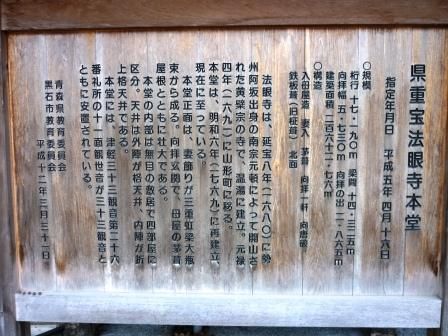 県重宝法眼寺本堂
指定年月日 平成五年四月十六日
○規模
桁行 十七・一九〇m 梁間 十四・三三五m
向拝幅 五・七三〇m 向拝の出 二・八六五m
建築面積 二百六十二・七六㎡
○構造
入母屋造 妻入 茅葺 向拝一軒 向唐破
鉄板葺(旧柾葺) 北面
法眼寺は、延宝八年(一六八〇)に勢
州阿坂出身の南宗元頓によって開山さ
れた黄檗宗の寺で、温湯に建立。元禄
四年(一六九一)に山形町に移る。
本堂は、明和六年(一七六九)に再建立、
現在に至っている。
本堂正面は、妻飾りが三重虹梁大瓶
束から成る。向拝玄関で、母屋の茅葺
屋根とともに壮大である。
本堂の内部は無目の敷居で四部屋に
区分。天井は外陣が格天井、内陣が折
上格天井である。
本堂には、津軽三十三観音第二十六
番札所の十一面観世音が三十三観音と
ともに安置されている。
青森県教育委員会
黒石市教育委員会
平成十二年三月三十一日